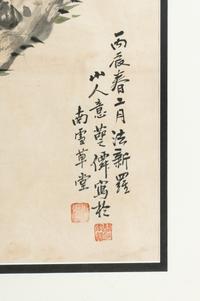 丙辰春二月法新羅
山人意蘷僊寫於
南雪草堂